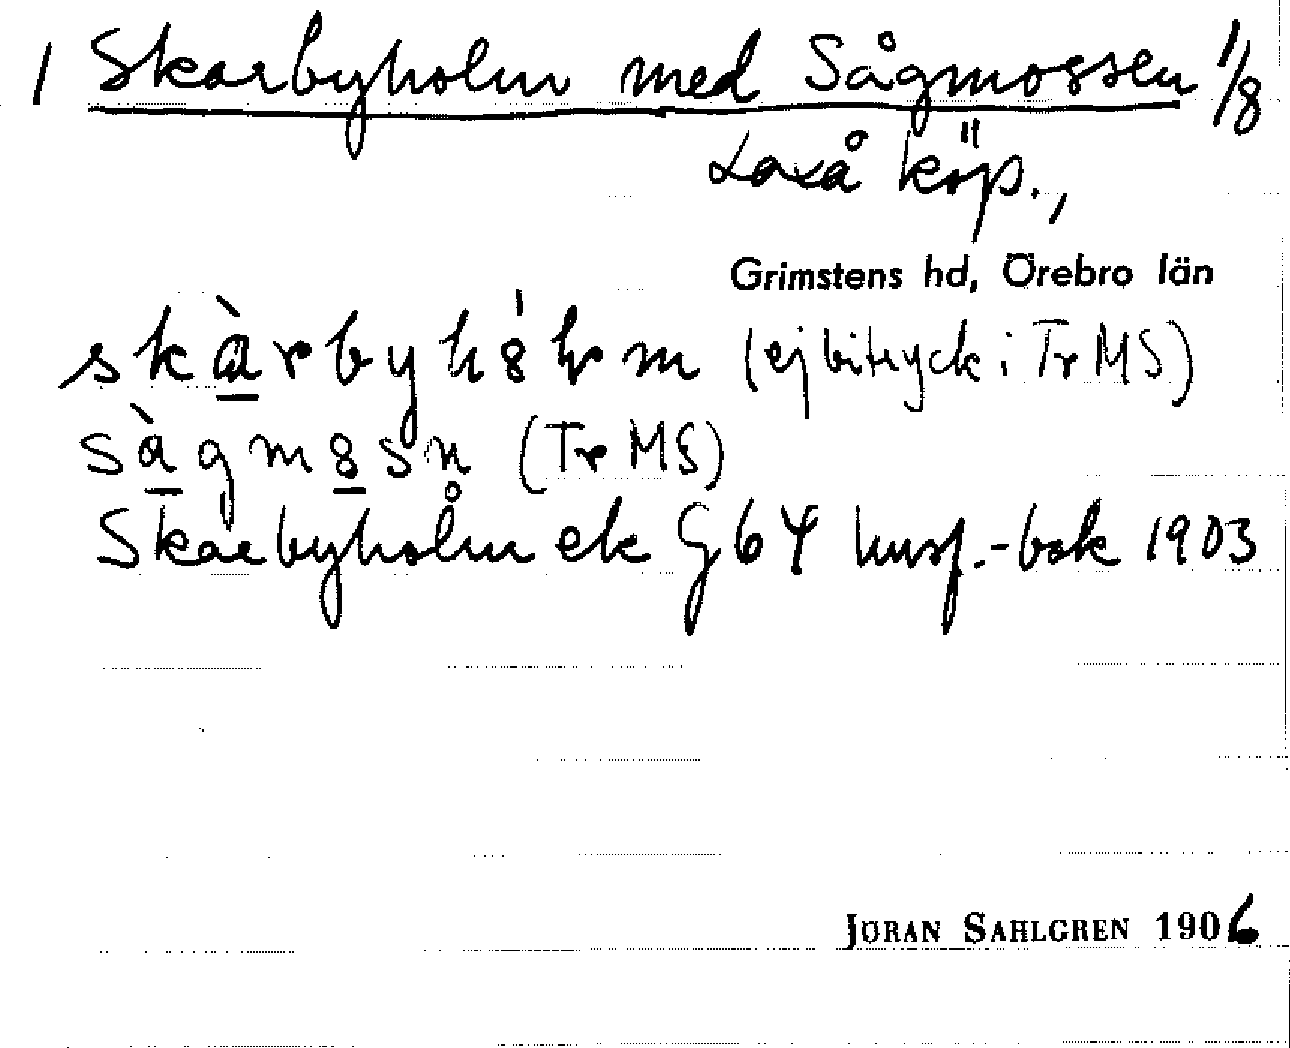 1 Skarbyholm med Sågmossen 1/8
Laxå köp.,
Grimstens hd, Örebro län
skàrbyhólm (ej bitryck i Tr MS)
sàgmosn (Tr MS)
Skarbyholm ek G64 husf.-bok 1903
JÖRAN SAHLGREN 1906